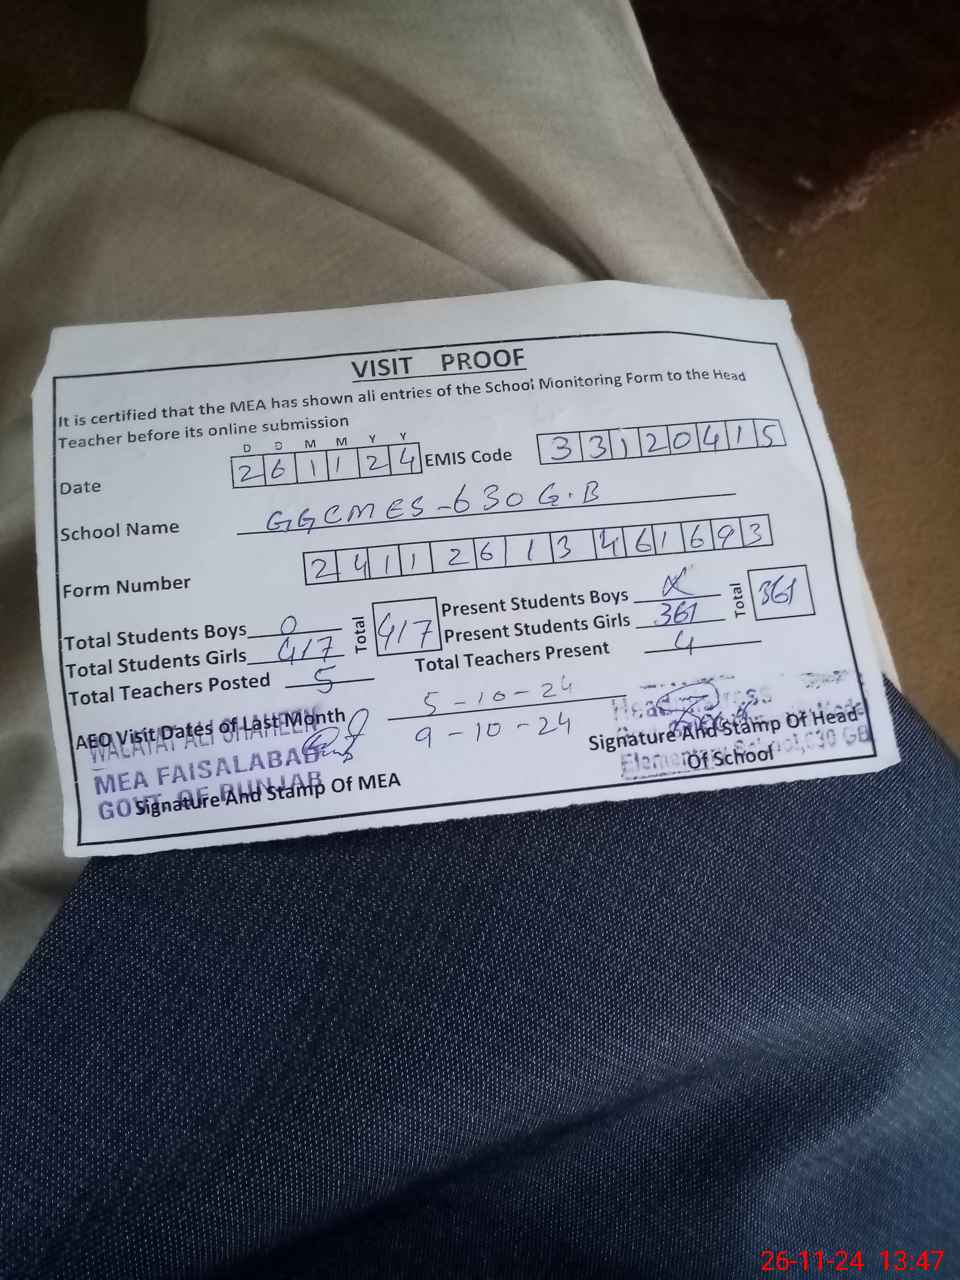 VISIT PROOF
It is certified that the MEA has shown all entries of the School Monitoring Form to the Head
Teacher before its online submission
D D M M Y Y
Date 2 6 1 1 2 4 EMIS Code 3 3 1 2 0 4 1 5
School Name GGCMES-630 G.B
Form Number 2 4 1 1 2 6 1 3 4 6 1 6 9 3
Total Students Boys 0 Total 417 Present Students Boys Total 361
Total Students Girls 417 Present Students Girls 361
Total Teachers Posted 5 Total Teachers Present 4
AEO Visit Dates of Last Month 5-10-24
9-10-24
WALAYAT ALI SHAHEEN
MEA FAISALABAD
GOVT. OF PUNJAB
Signature And Stamp Of MEA
Signature And Stamp Of Head
Of School
Elementary School,630 GB
26-11-24 13:47